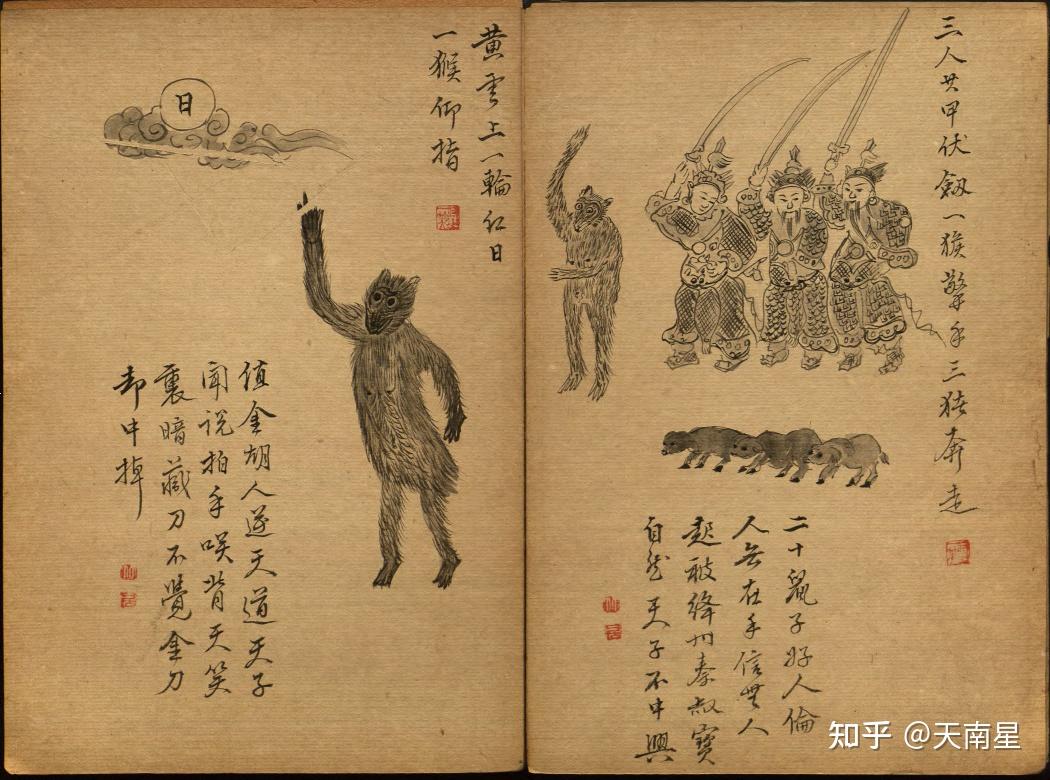 三人共甲伏劔一猴擎手三猪奔走
二十鼠子好人倫
人無在手信無人
起被絳州秦叔寶
自然天子不中興
黄雲上一輪红日
一猴仰指
日
值金胡人遂天道天子
闻说拍手咲背天笑
裏暗藏刀不覺金刀
却中掉
知乎 @天南星